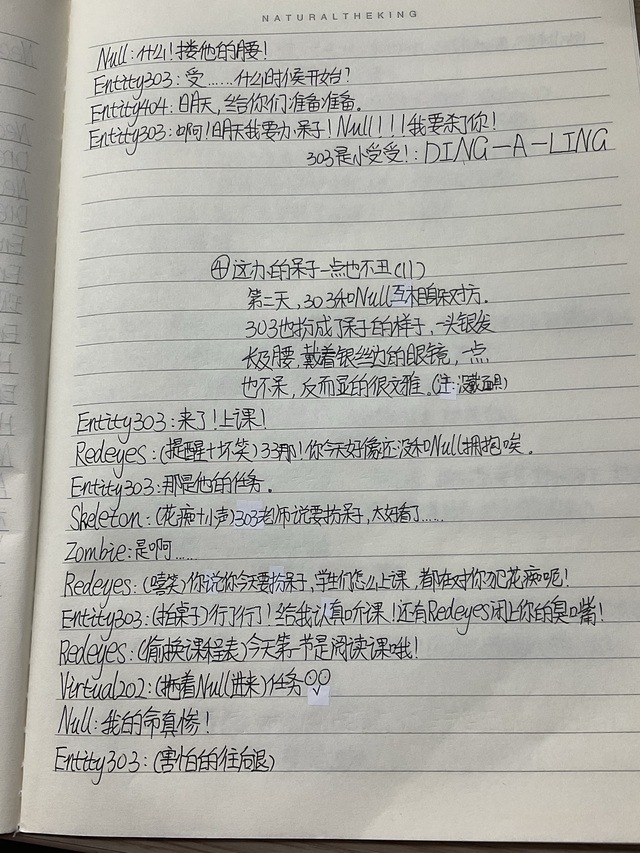 NATURALTHEKING
Null:什么!搂他的腰!
Entity303:受……什么时候开始?
Entity404:明天,给你们准备准备。
Entity303:啊!明天我要办呆子!Null!!!我要杀了你!
303是小受受!:DING-A-LING
④这办的呆子一点也不丑(11)
第二天,303和Null互相躲对方.
303也扮成了呆子的样子,一头银发
长及腰,戴着银丝边的眼镜,一点
也不呆,反而显的很文雅.(注:没戴面具)
Entity303:来了!上课!
Redeyes:(提醒+坏笑)33那!你今天好像还没和Null拥抱唉.
Entity303:那是他的任务.
Skeleton:(花痴+小声)303老师说要扮呆子,太好看了……
Zombie:是啊……
Redeyes:(嘻笑)你说你今天要扮呆子,学生们怎么上课,都在对你犯花痴呢!
Entity303:(拍桌子)行了行了!给我认真听课!还有Redeyes闭上你的臭嘴!
Redeyes:(偷换课程表)今天第一节是阅读课哦!
Virtual202:(拖着Null进来)任务
Null:我的命真惨!
Entity303:(害怕的往后退)